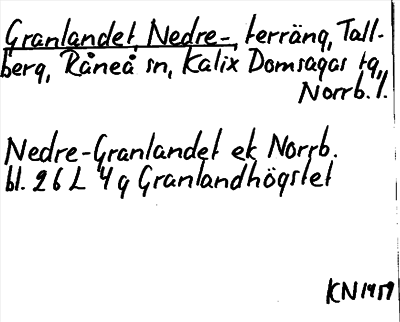 Granlandet, Nedre-, terräng, Tall-
berg, Råneå sn, Kalix Domsagas tg,
Norrb. l.
Nedre-Granlandet ek Norrb.
bl. 26 L 4 g Granlandhögstet
KN 1959